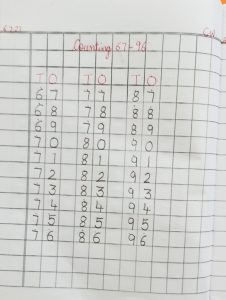 Counting 67-96
T O T O T O
6 7 7 7 8 7
6 8 7 8 8 8
6 9 7 9 8 9
7 0 8 0 9 0
7 1 8 1 9 1
7 2 8 2 9 2
7 3 8 3 9 3
7 4 8 4 9 4
7 5 8 5 9 5
7 6 8 6 9 6